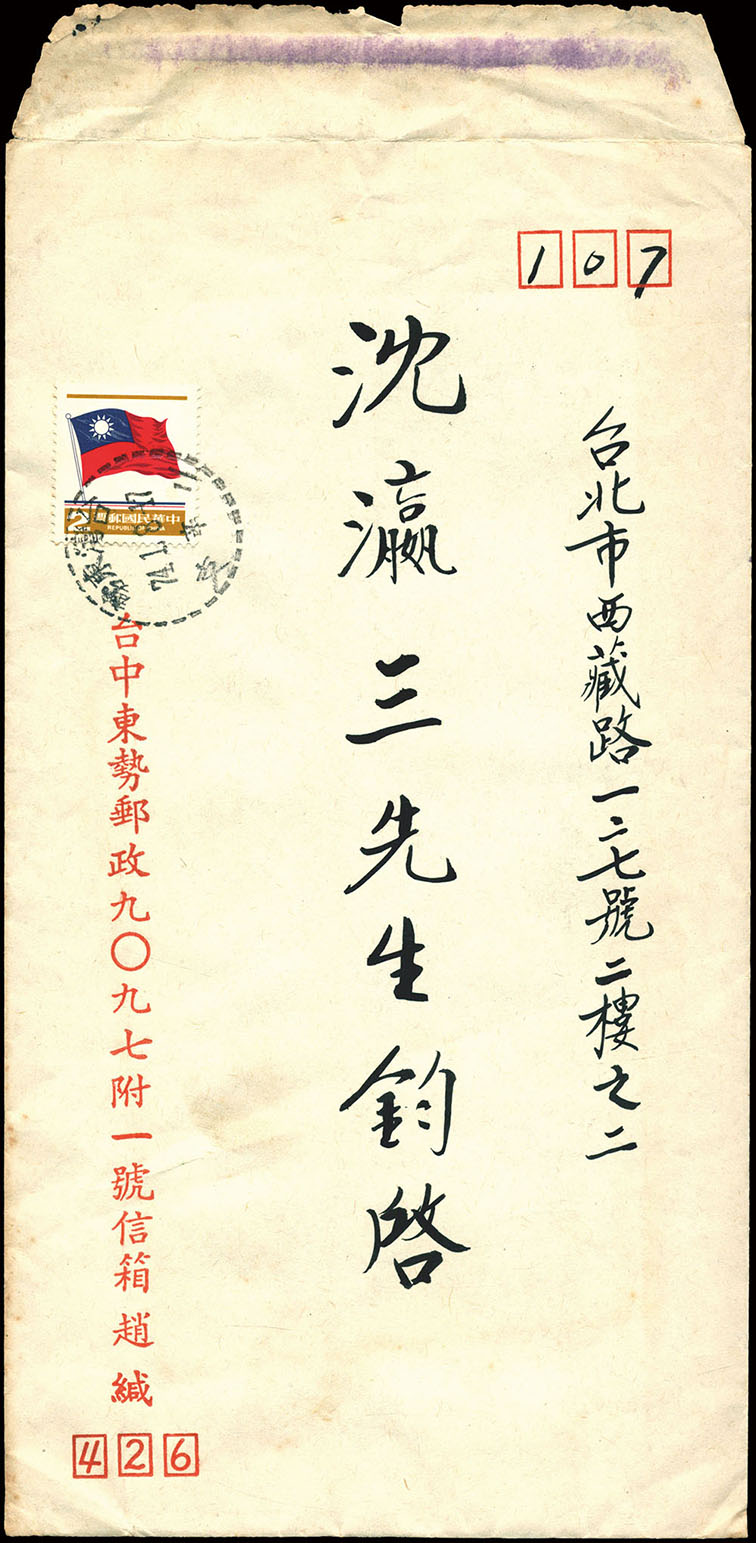 107
台北市西藏路一二七號二樓之二
沈瀛三先生鈞啓
2
中華民國郵票
REPUBLIC OF CHINA
台中東勢郵政九〇九七附一號信箱 趙 緘
426